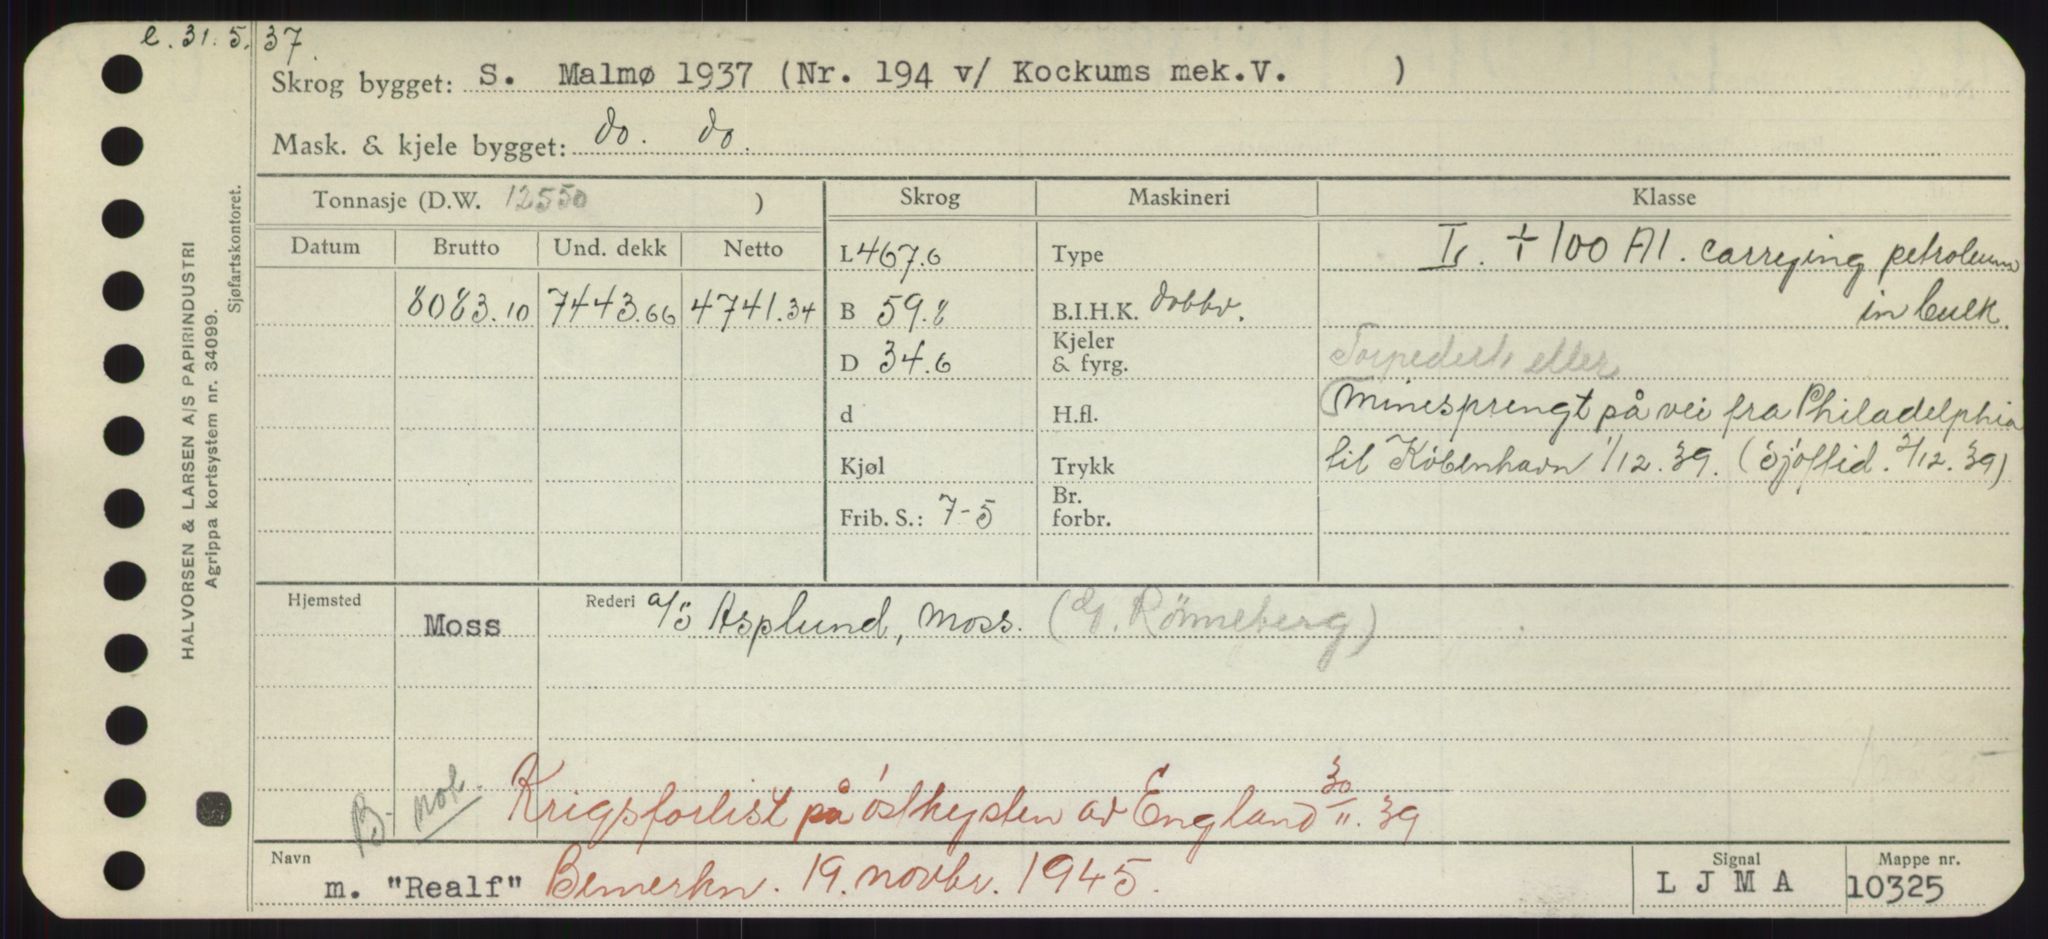 e. 31. 5. 37.
Skrog bygget: S. Malmø 1937 (Nr. 194 v/ Kockums mek.V. )
Mask. & kjele bygget: do. do.
Tonnasje (D.W. 12550 ) Skrog Maskineri Klasse
Datum Brutto Und. dekk Netto
L 467.6 Type + 100 A1. carrying petroleum
8083.10 7443.66 4741.34 B 59.8 B.I.H.K. dobbv. in bulk.
D 34.6 Kjeler & fyrg. Torpedert eller
d H.fl. minesprengt på vei fra Philadelphia
Kjøl Trykk til København 1/12.39. (Sjöftid. 2/12.39)
Frib. S.: 7-5 Br. forbr.
Hjemsted Moss Rederi a/s Asplund, Moss. (Rönneberg)
B. not. Krigsforlist på östkysten av England 30/11.39
Navn m. "Realf" Bemerkn. 19. novbr. 1945.
Signal L J M A
Mappe nr. 10325
HALVORSEN & LARSEN A/S PAPIRINDUSTRI
Agrippa kortsystem nr. 34099.
Sjøfartskontoret.